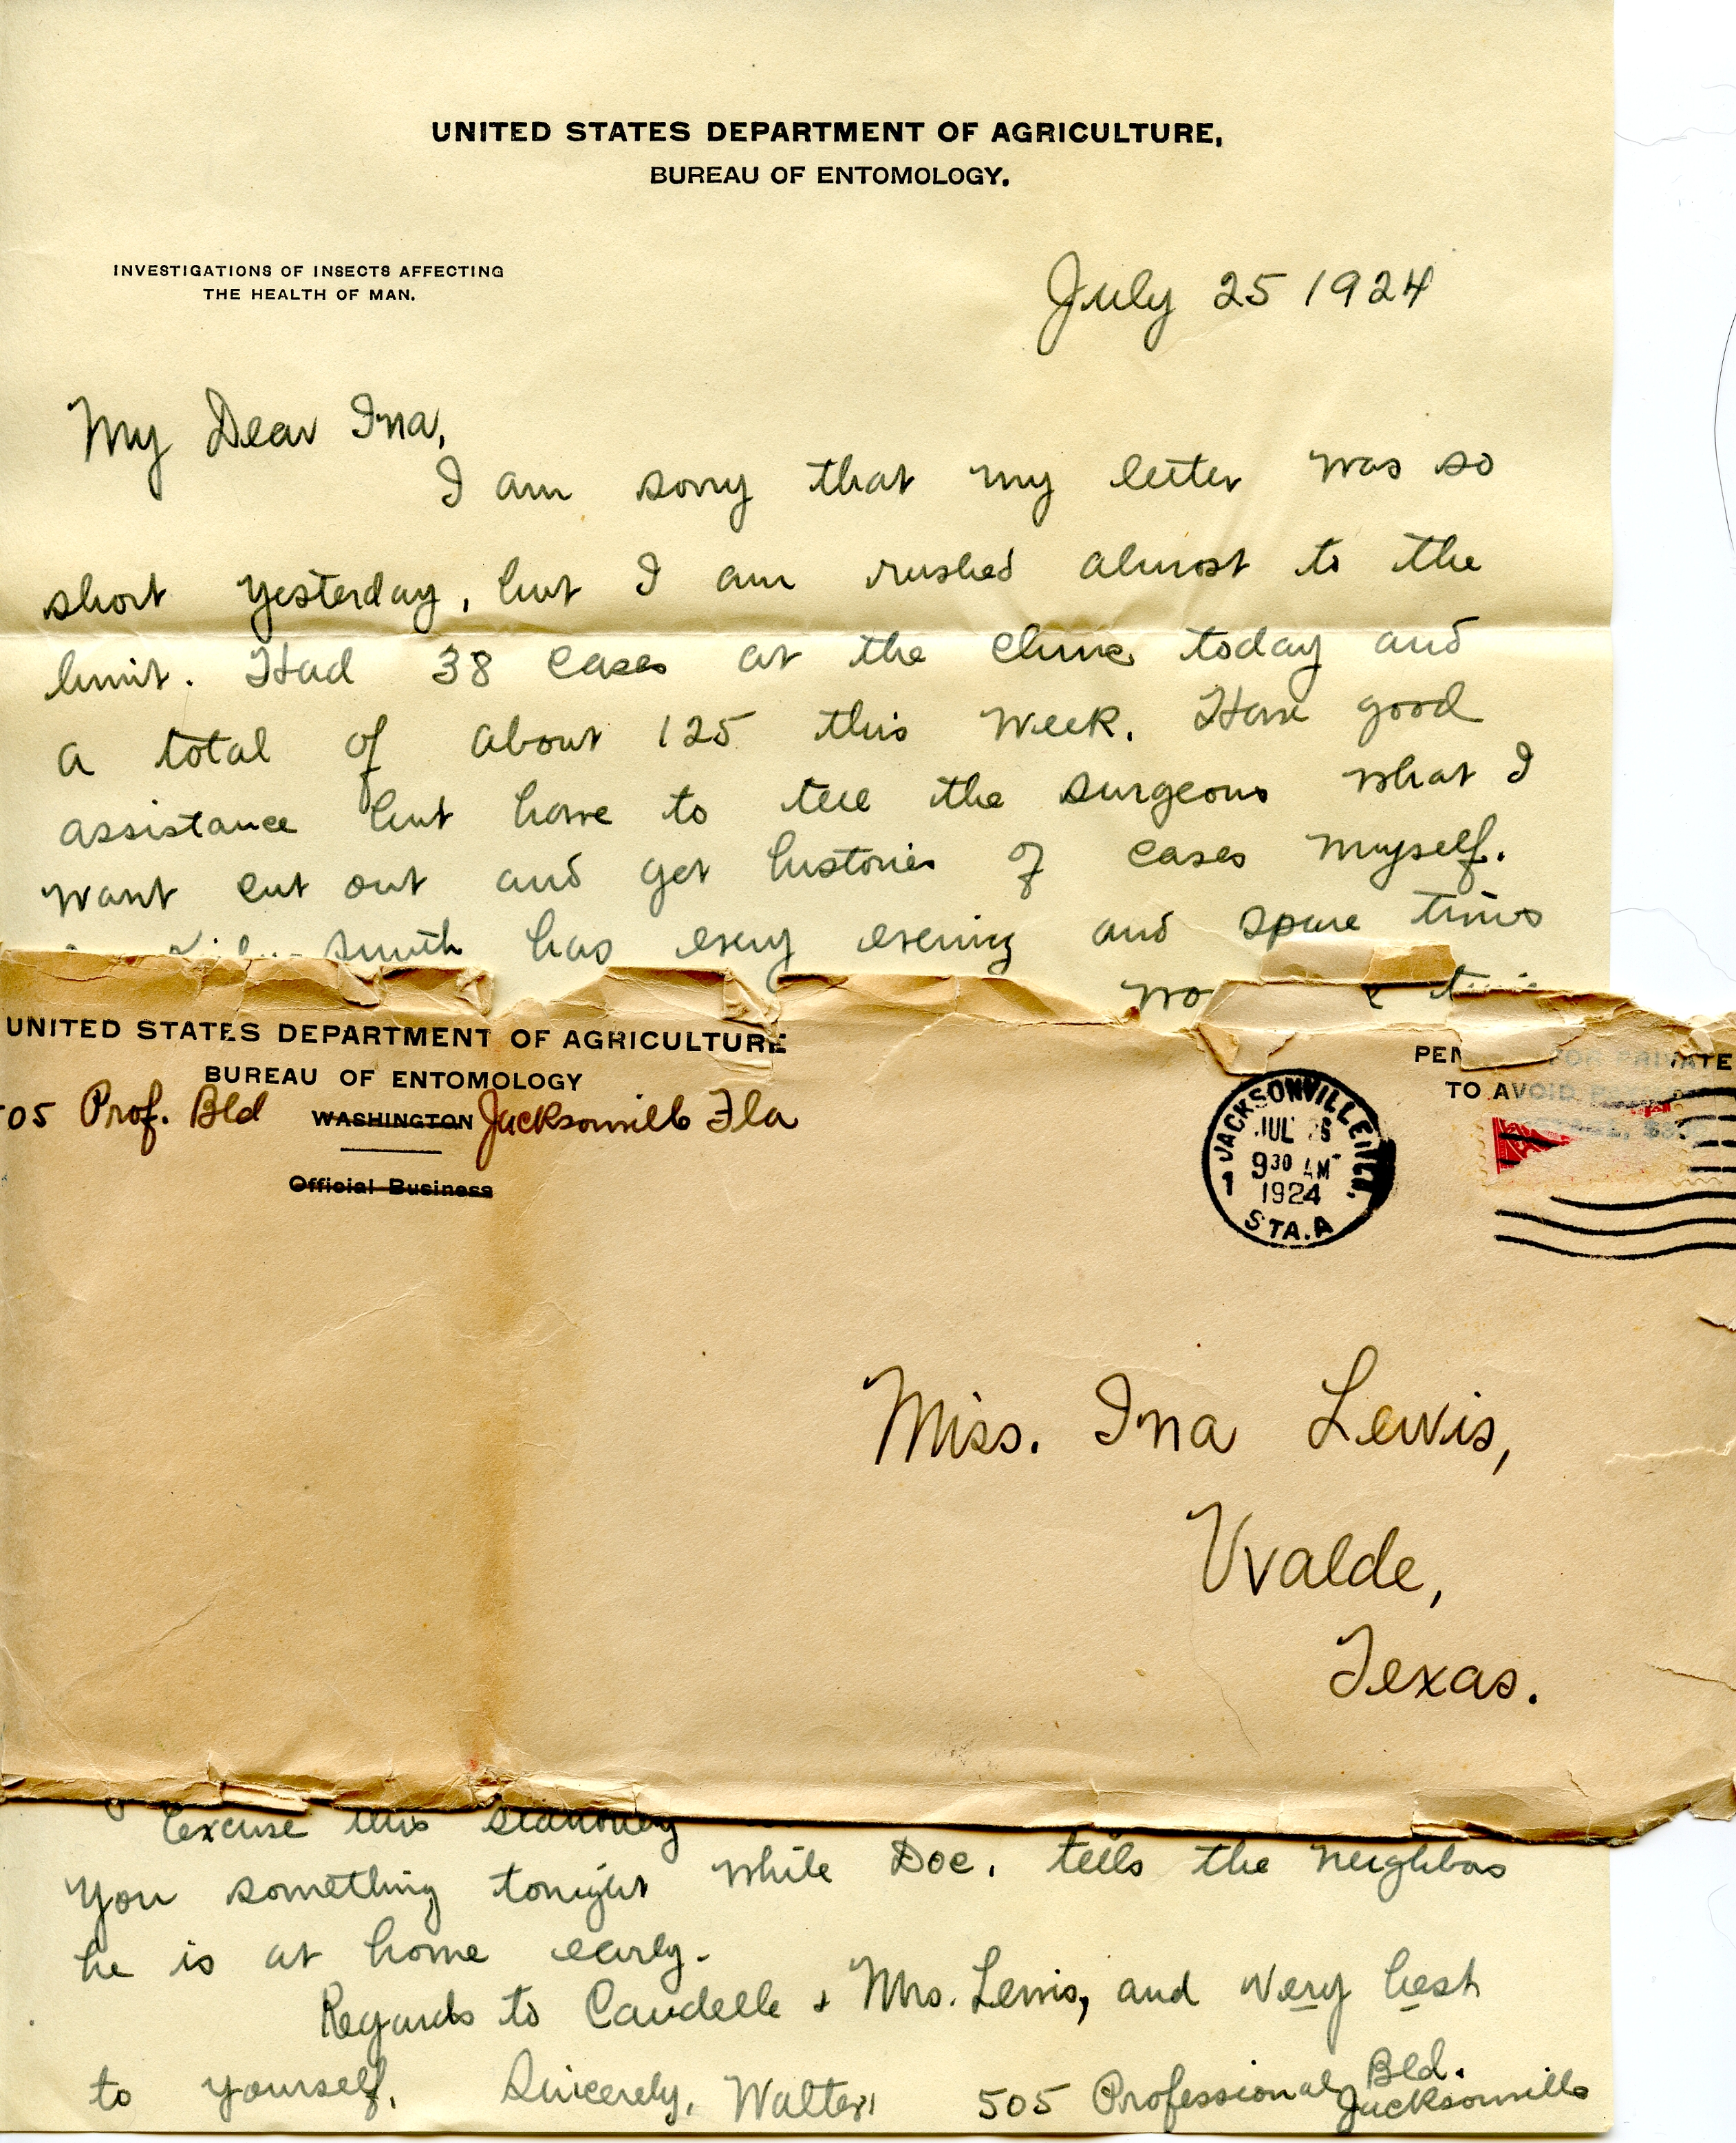 UNITED STATES DEPARTMENT OF AGRICULTURE,
BUREAU OF ENTOMOLOGY.
INVESTIGATIONS OF INSECTS AFFECTING
THE HEALTH OF MAN.
July 25 1924
My Dear Ina,
I am sorry that my letter was so
short yesterday, but I am rushed almost to the
limit. Had 38 cases at the clinic today and
a total of about 125 this week. Have good
assistance but have to tell the surgeons what I
want cut out and get histories of cases myself.
Smith has every evening and spare times
UNITED STATES DEPARTMENT OF AGRICULTURE
BUREAU OF ENTOMOLOGY
05 Prof. Bld WASHINGTON Jacksonville Fla
Official Business
PRIVATE
TO AVOID
JACKSONVILLE
JUL
9 30 AM
1924
STA. A
1
Miss. Ina Lewis,
Uvalde,
Texas.
Excuse this stationery
You something tonight while Doc. tells the neighbors
he is at home early.
Regards to Caudelle + Mrs. Lewis, and very best
to yourself. Sincerely, Walter 505 Professional Bld.
Jacksonville